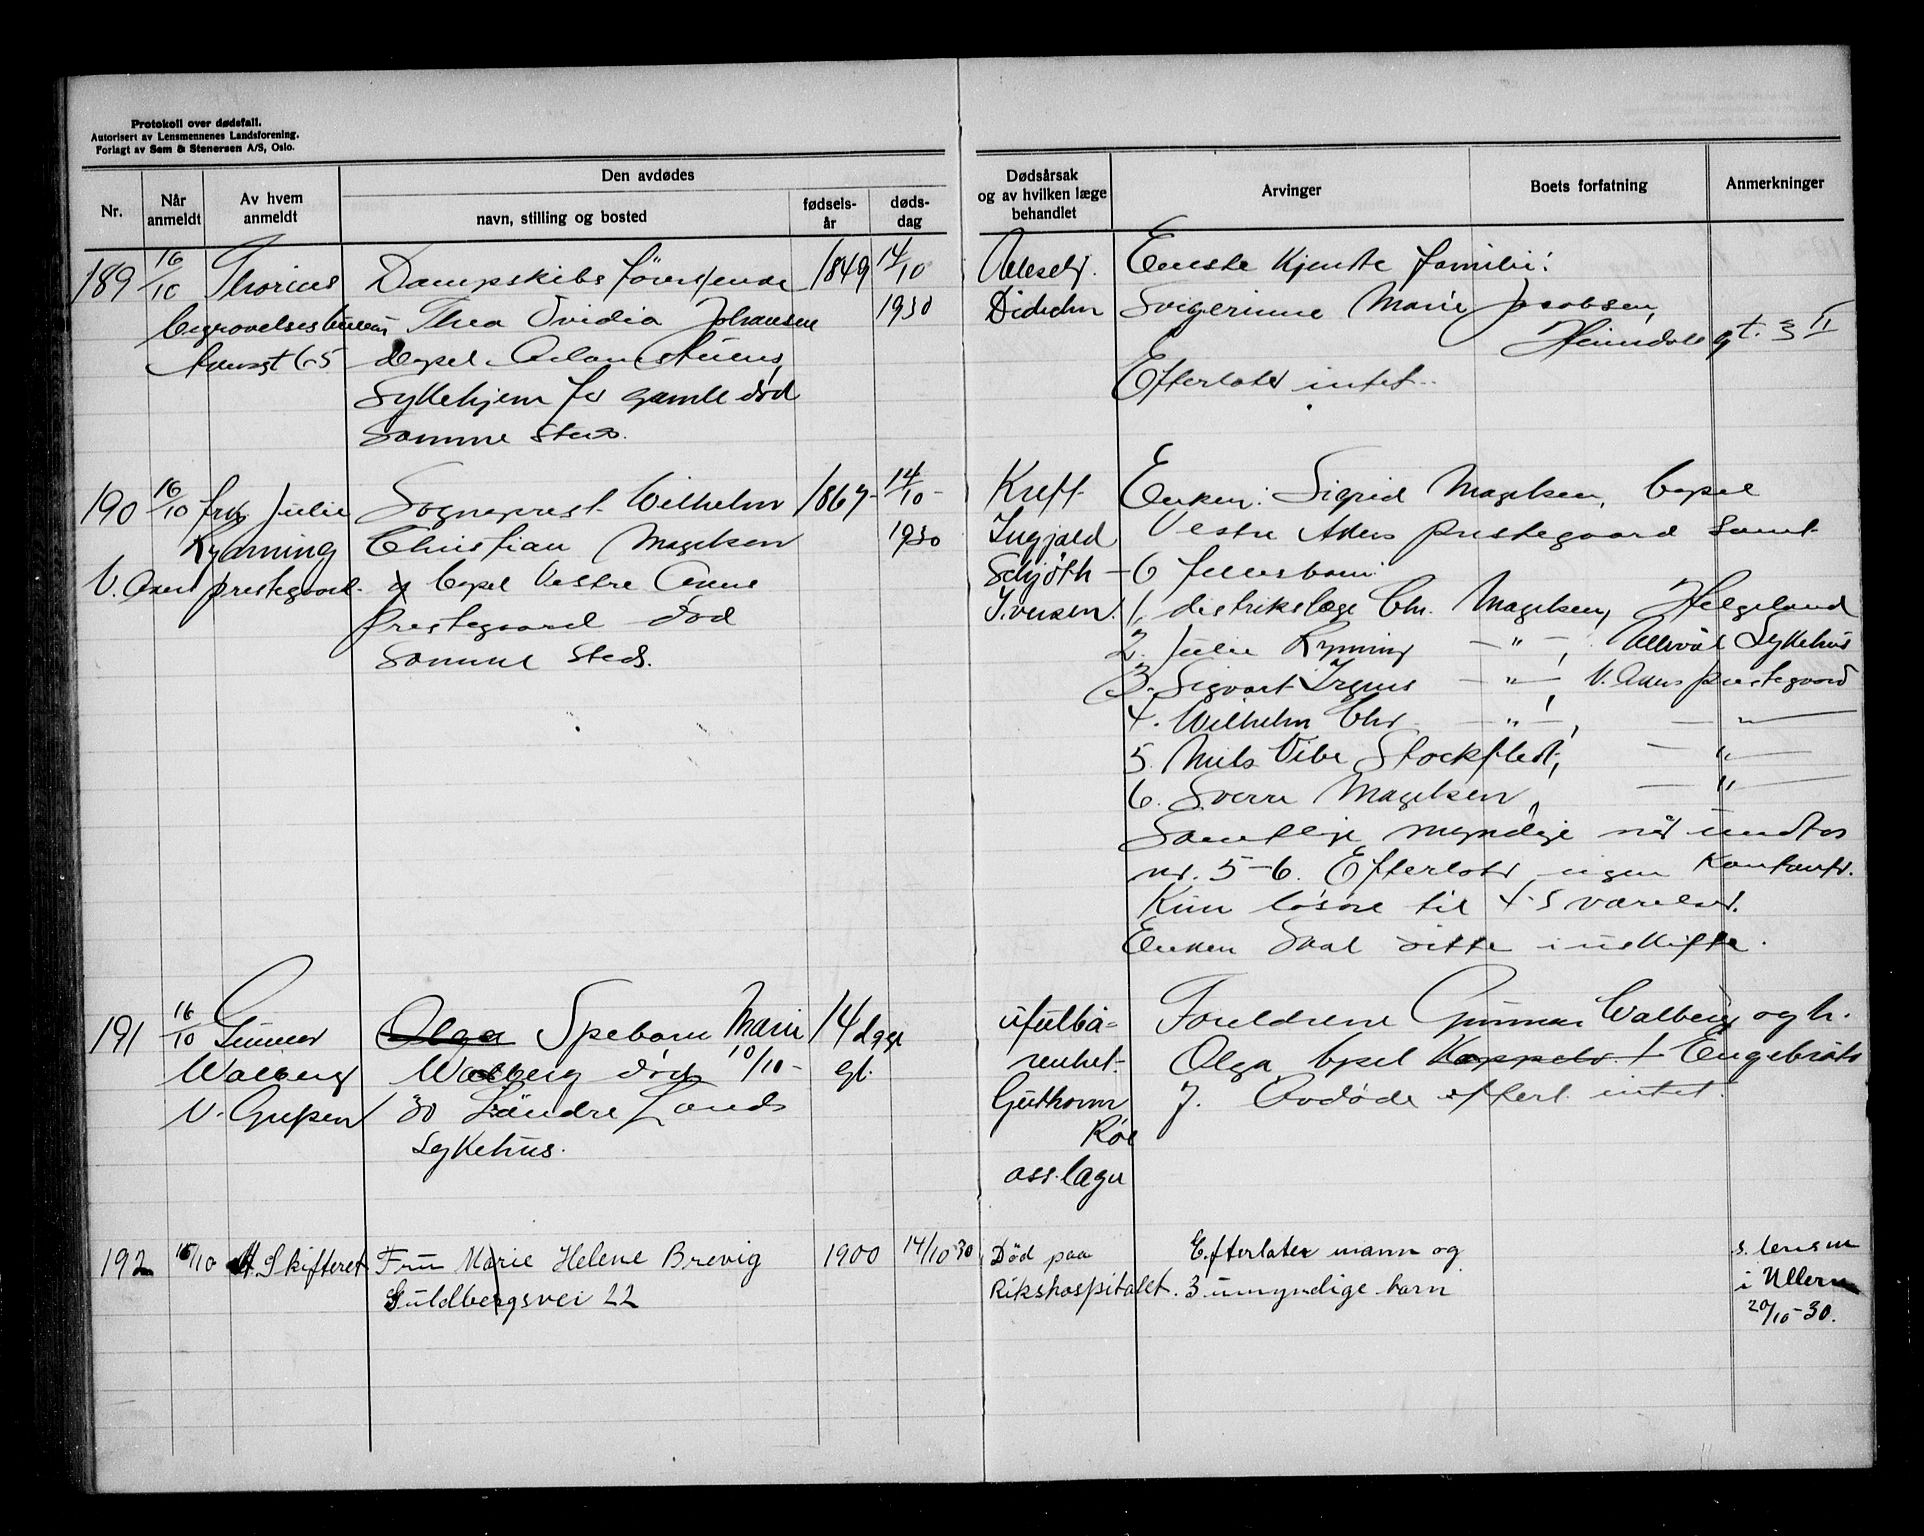 Protokoll over dødsfall.
Autorisert av Lensmennenes Landsforening.
Forlagt av Sem & Stenersen A/S, Oslo.
Nr.
Når anmeldt
Av hvem anmeldt
Den avdødes
navn, stilling og bosted
fødsels-år
døds-dag
Dødsårsak og av hvilken læge behandlet
Arvinger
Boets forfatning
Anmerkninger
189
16/10
Thorius
begravelsesbureau
Dampskibsførerenke
Thea Ovidia Johansen
bopel Adamstuens
Sykehjem for gamle død
samme sted.
1849
14/10
1930
Eneste kjendte familie:
Svigerinne Marie Jacobsen,
Heimdals gt. 3 II
Efterlater intet.
190
16/10
fru Julie
Kynning
V. Aker prestegaard.
Sogneprest Wilhelm
Christian Magelsen
bopel Vestre Aker
prestegaard død
samme sted.
1867
14/10
1930
Kreft
Ingjald
Schjøth
Iversen
Enken: Sigrid Magelsen, bopel
Vestre Akers prestegaard samt
6 fellesbarn:
1, distriktslæge Chr. Magelsen, Helgeland
2. Julie Kynning — " —, Ullevål Sykehus
3. Sigvart Irgens — " —, V. Akers prestegaard
4. Wilhelm Chr. — " —, — " —
5. Nils Vibe Stockfledt, — " —
6. Sverre Magelsen, — " —
Samtlige myndige når undtas
nr. 5-6. Efterlater ingen kontanter.
Kun løsøre til 4-5 værelser.
Enken skal sitte i uskifte.
191
16/10
Gunnar
Walberg
Olga Spebarn Marie
Walberg død 10/10-
30 Søndre Lands
Sykehus.
14 dage
gl.
ufulbå-
renhet.
Guthorm
Røe
ass. læge
Foreldrene Gunnar Walberg og h.
Olga, bopel Engebråts
7. Avdøde efterl. intet.
192
15/10
Skifteret
Fru Marie Helene Brevig
Guldbergsvei 22
1900
14/10-30
Død paa
Rikshospitalet.
Efterlater mann og
3 umyndige barn
s. lensm
i Ullern
20/10-30.